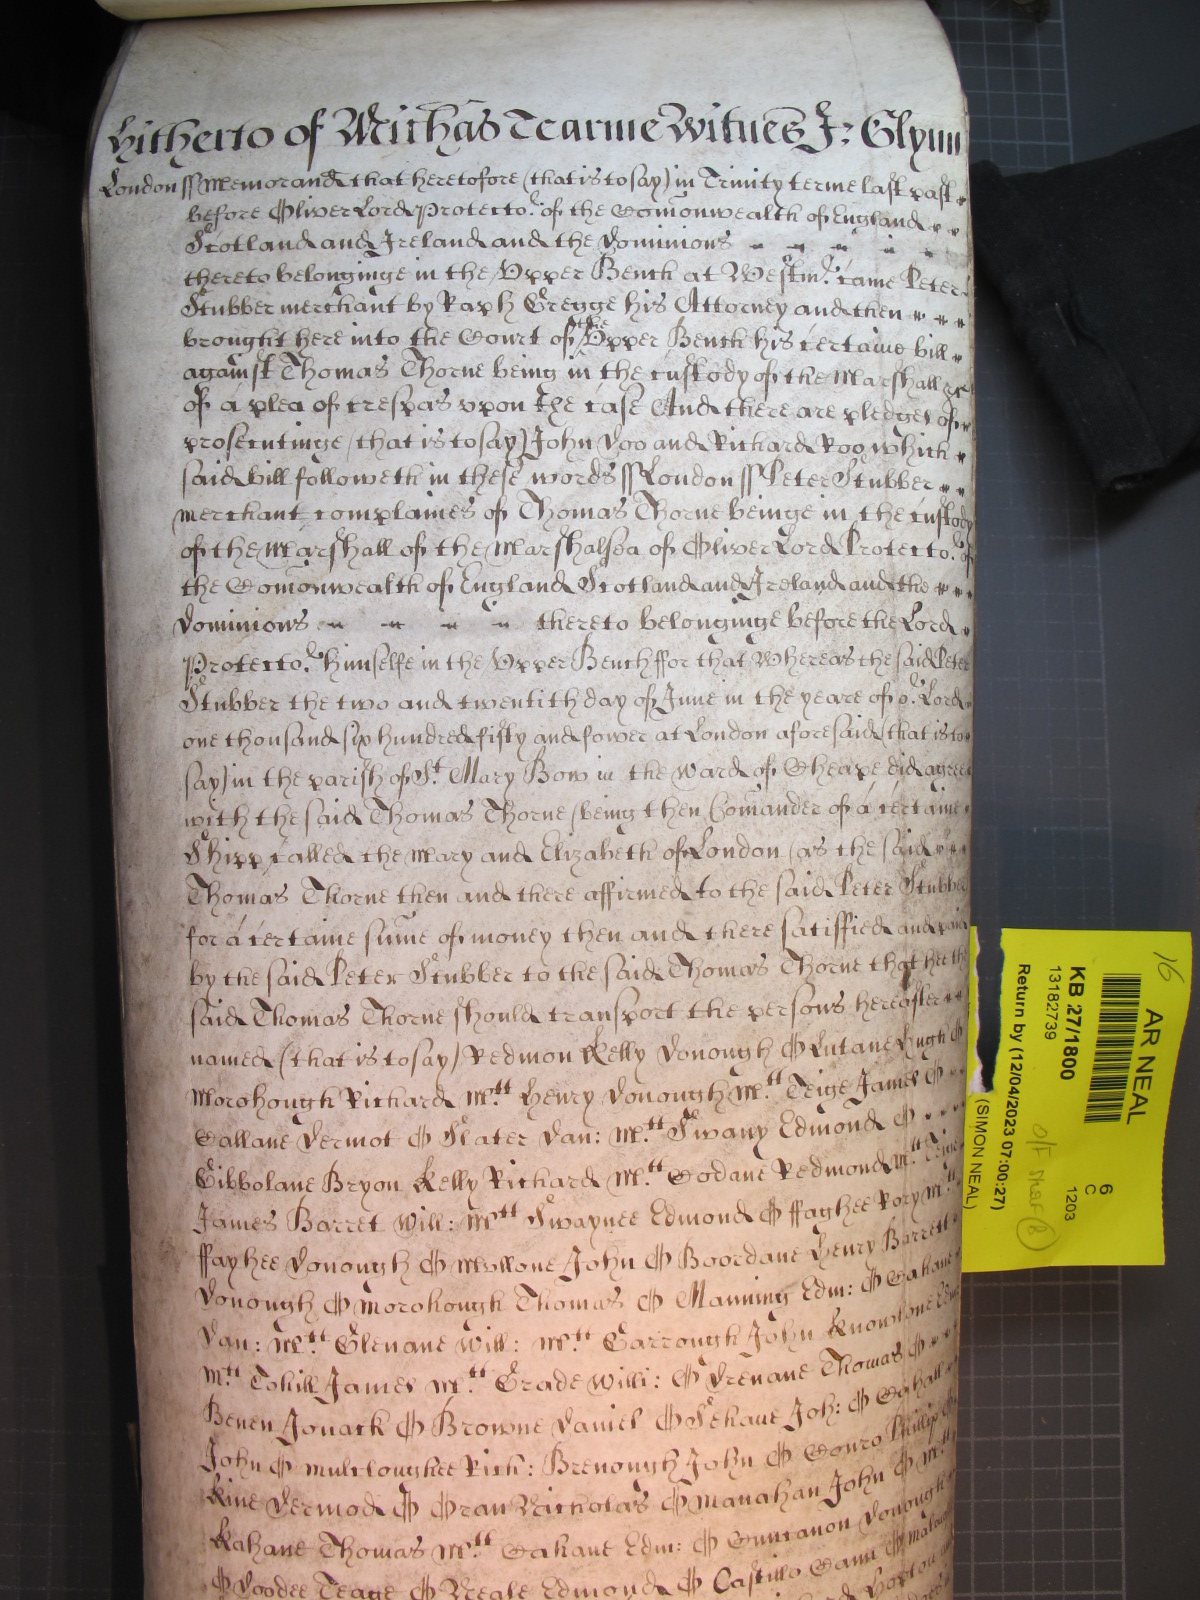 hitherto of Michas Tearme Witnes J: Glynn
London ss Memorand that heretofore (that is to say) in Trinity terme last past
before Oliver Lord Protector of the Comonwealth of England
Scotland and Ireland and the Dominions
thereto belonginge in the Upper Bench at Westmr came Peter
Stubber merchant by Raph Gregge his Attorney and then
brought here into the Court of the Upper Bench his certaine bill
against Thomas Thorne being in the custody of the Marshall &c
of a plea of trespas upon the case And there are pledges of
prosecutinge (that is to say) John Doo and Richard Roo which
said bill followeth in these words ss London ss Peter Stubber
merchant complaines of Thomas Thorne beinge in the custody
of the Marshall of the Marshalsea of Oliver Lord Protector of
the Comonwealth of England Scotland and Ireland and the
Dominions thereto belonginge before the Lord
Protector himselfe in the Upper Bench ffor that Whereas the said Peter
Stubber the two and twentith day of June in the yeare of or Lord
one thousand six hundred fifty and fower at London aforesaid (that is to
say) in the parish of St Mary Bow in the Ward of Cheape did agree
with the said Thomas Thorne (being then Comander of a certaine
Shipp called the Mary and Elizabeth of London (as the said
Thomas Thorne then and there affirmed to the said Peter Stubber
for a certaine sume of money then and there satisfied and paid
by the said Peter Stubber to the said Thomas Thorne that hee the
said Thomas Thorne should transport the persons hereafter
named (that is to say) Redmon Kelly Donough O Lutane Hugh O
Morohough Richard Mctt Henry Donough Mctt Teige James O
Callane Dermot O Slater Dan: Mctt Swany Edmond O
Gibbolane Bryon Kelly Richard Mctt Codane Redmond Mctt
James Barret Will: Mctt Swaynee Edmond O ffaghee Rory Mctt
ffayhee Donough O Mollone John O Boordane Henry Barrett
Donough O Morohough Thomas O Manning Edm: O Cahane
Dan: Mctt Glenane Will: Mctt Carrough John Knowlone
Mctt Tohill James Mctt Grade Willi: O Drenane Thomas O
Benen Jonack O Browne Daniel O Sehane Joh: O Cahall
John O Mulcloughee Rich: Brenough John O Conro Phillip
Kine Dermod O Oran Nicholas O Manahan John O Mctt
Kahane Thomas Mctt Cahane Edm: O Cuncanon Donough
O Doodee Teage O Neale Edmond O Castillo Cann O
AR NEAL
16
KB 27/1800
13182739
Return by (12/04/2023 07:00:27)
(SIMON NEAL)
6
C
1203